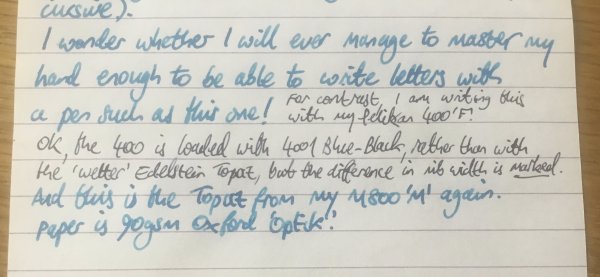 cursive).
I wonder whether I will ever manage to master my
hand enough to be able to write letters with
a pen such as this one! For contrast, I am writing this
with my Pelikan 400 'F'!
OK, the 400 is loaded with 4001 Blue-Black, rather than with
the 'wetter' Edelstein Topaz, but the difference in nib width is marked.
And this is the Topaz from my M800 'M' again.
Paper is 90gsm Oxford 'Optik'!